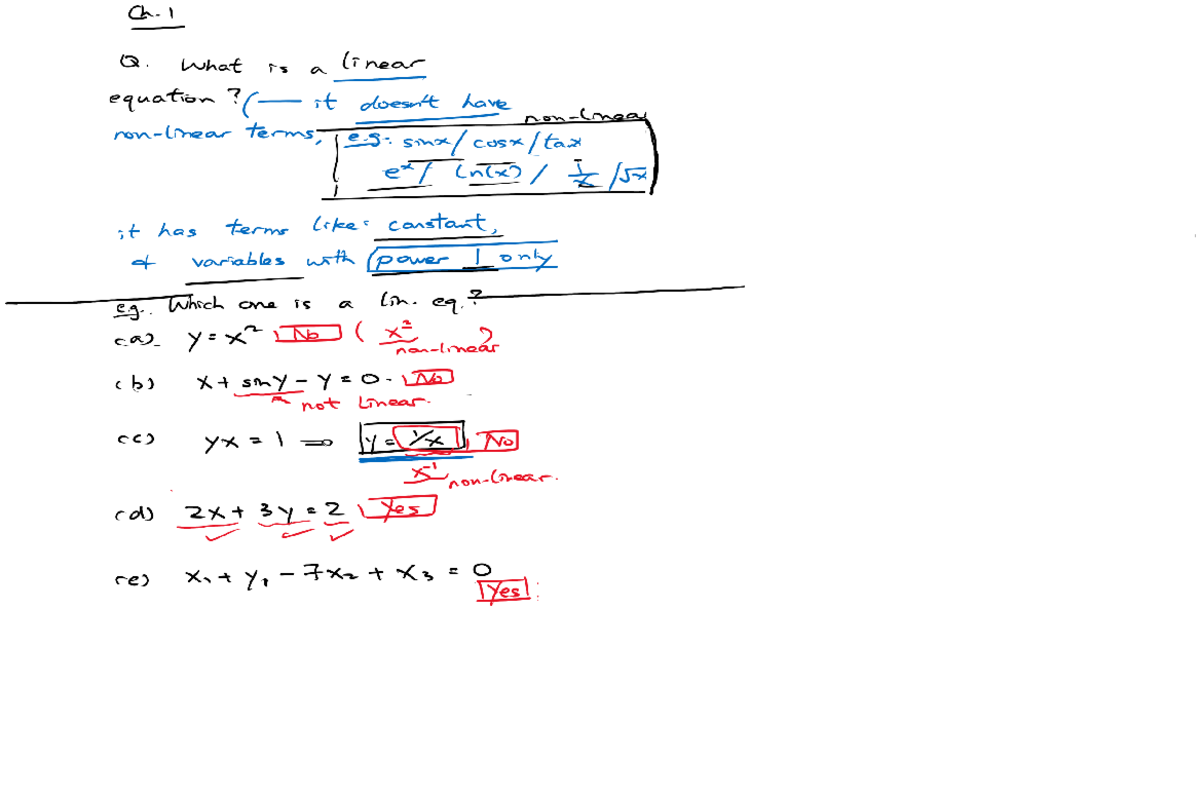 Ch. 1
Q. What is a linear
equation? (— it doesn't have
non-linear
non-linear terms, e.g. sinx/ cosx/ tax
eˣ/ ln(x) / 1/x /√x
it has terms like: constant,
& variables with power 1 only
e.g. Which one is a lin. eq.?
(a) y = x² No ( x² )
non-linear
(b) x + siny - y = 0. No
not Linear.
(c) yx = 1 ⇒ y = 1/x, No
x⁻¹ non-linear.
(d) 2x + 3y = 2 Yes
(e) x₁ + y₁ - 7x₂ + x₃ = 0
Yes